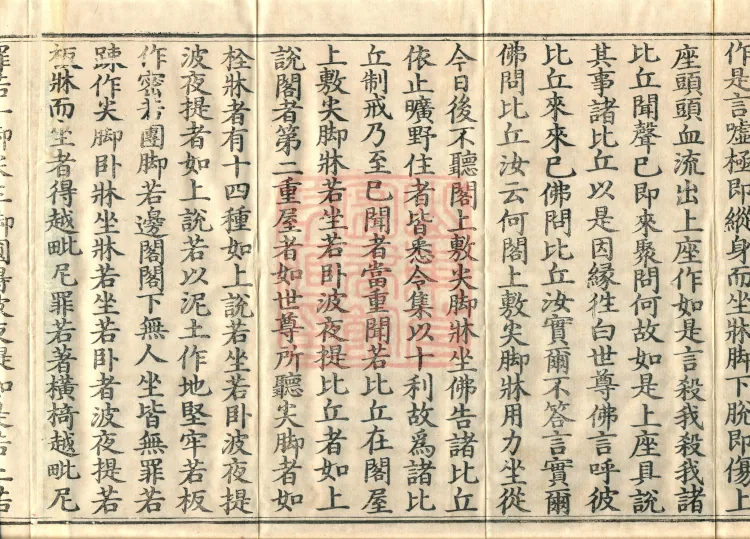 作是言嘘極即縱身而坐牀脚下脫即傷上
座頭頭血流出上座作如是言殺我殺我諸
比丘聞聲已即來聚問何故如是上座具說
其事諸比丘以是因緣往白世尊佛言呼彼
比丘來來已佛問比丘汝實爾不答言實爾
佛問比丘汝云何閣上敷尖脚牀用力坐從
今日後不聽閣上敷尖脚牀坐佛告諸比丘
依止曠野住者皆悉令集以十利故為諸比
丘制戒乃至已聞者當重聞若比丘在閣屋
上敷尖脚牀若坐若卧波夜提比丘者如上
說閣者第二重屋者如世尊所聽尖脚者如
栓牀者有十四種如上說若坐若卧波夜提
波夜提者如上說若以泥土作地堅牢若板
作密若團脚若邊閣閣下無人坐皆無罪若
踈作尖脚卧牀坐牀若坐若卧者波夜提若
牀而坐者得越毗尼罪若著橫檹越毗尼
罪若一脚尖三脚團得波夜提如是若二若